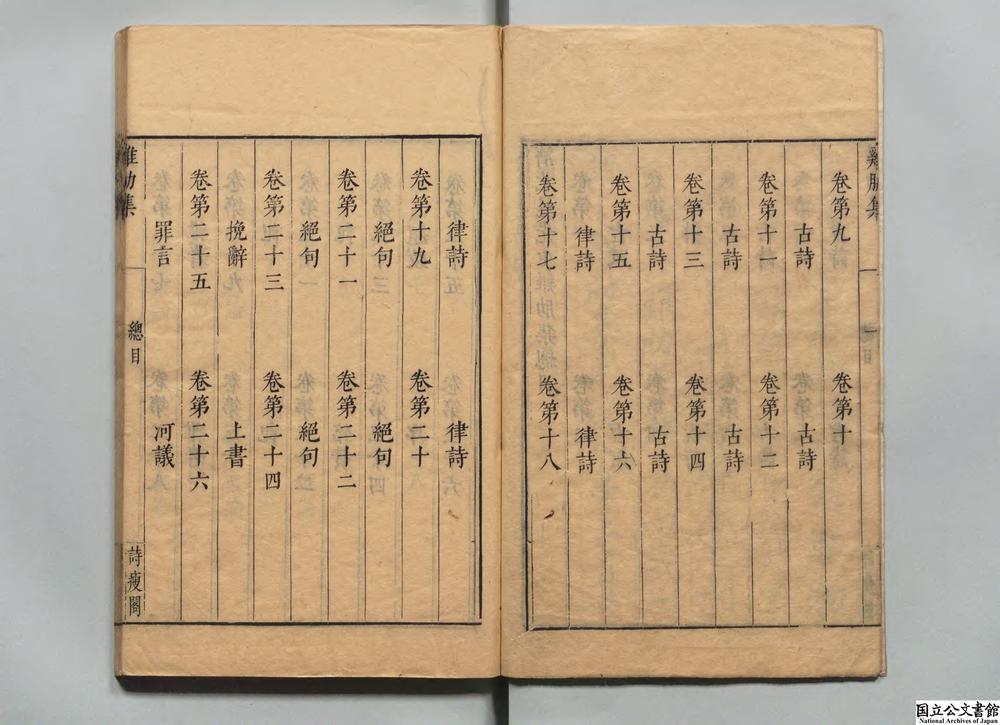 雞肋集
卷第九　卷第十
古詩　古詩
卷第十一　卷第十二
古詩　古詩
卷第十三　卷第十四
古詩　古詩
卷第十五　卷第十六
律詩　律詩
卷第十七　卷第十八
律詩　律詩
卷第十九　卷第二十
絕句　絕句
卷第二十一　卷第二十二
絕句　絕句
卷第二十三　卷第二十四
挽辭　上書
卷第二十五　卷第二十六
罪言　河議
雞肋集　總目　詩瘦閣
国立公文書館
National Archives of Japan